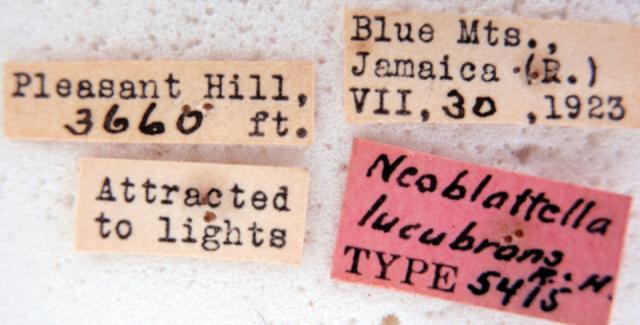 Pleasant Hill,
3660 ft.
Blue Mts.,
Jamaica (R.)
VII, 30 ,1923
Attracted
to lights
Neoblattella
lucubrans
R. H.
TYPE 5415